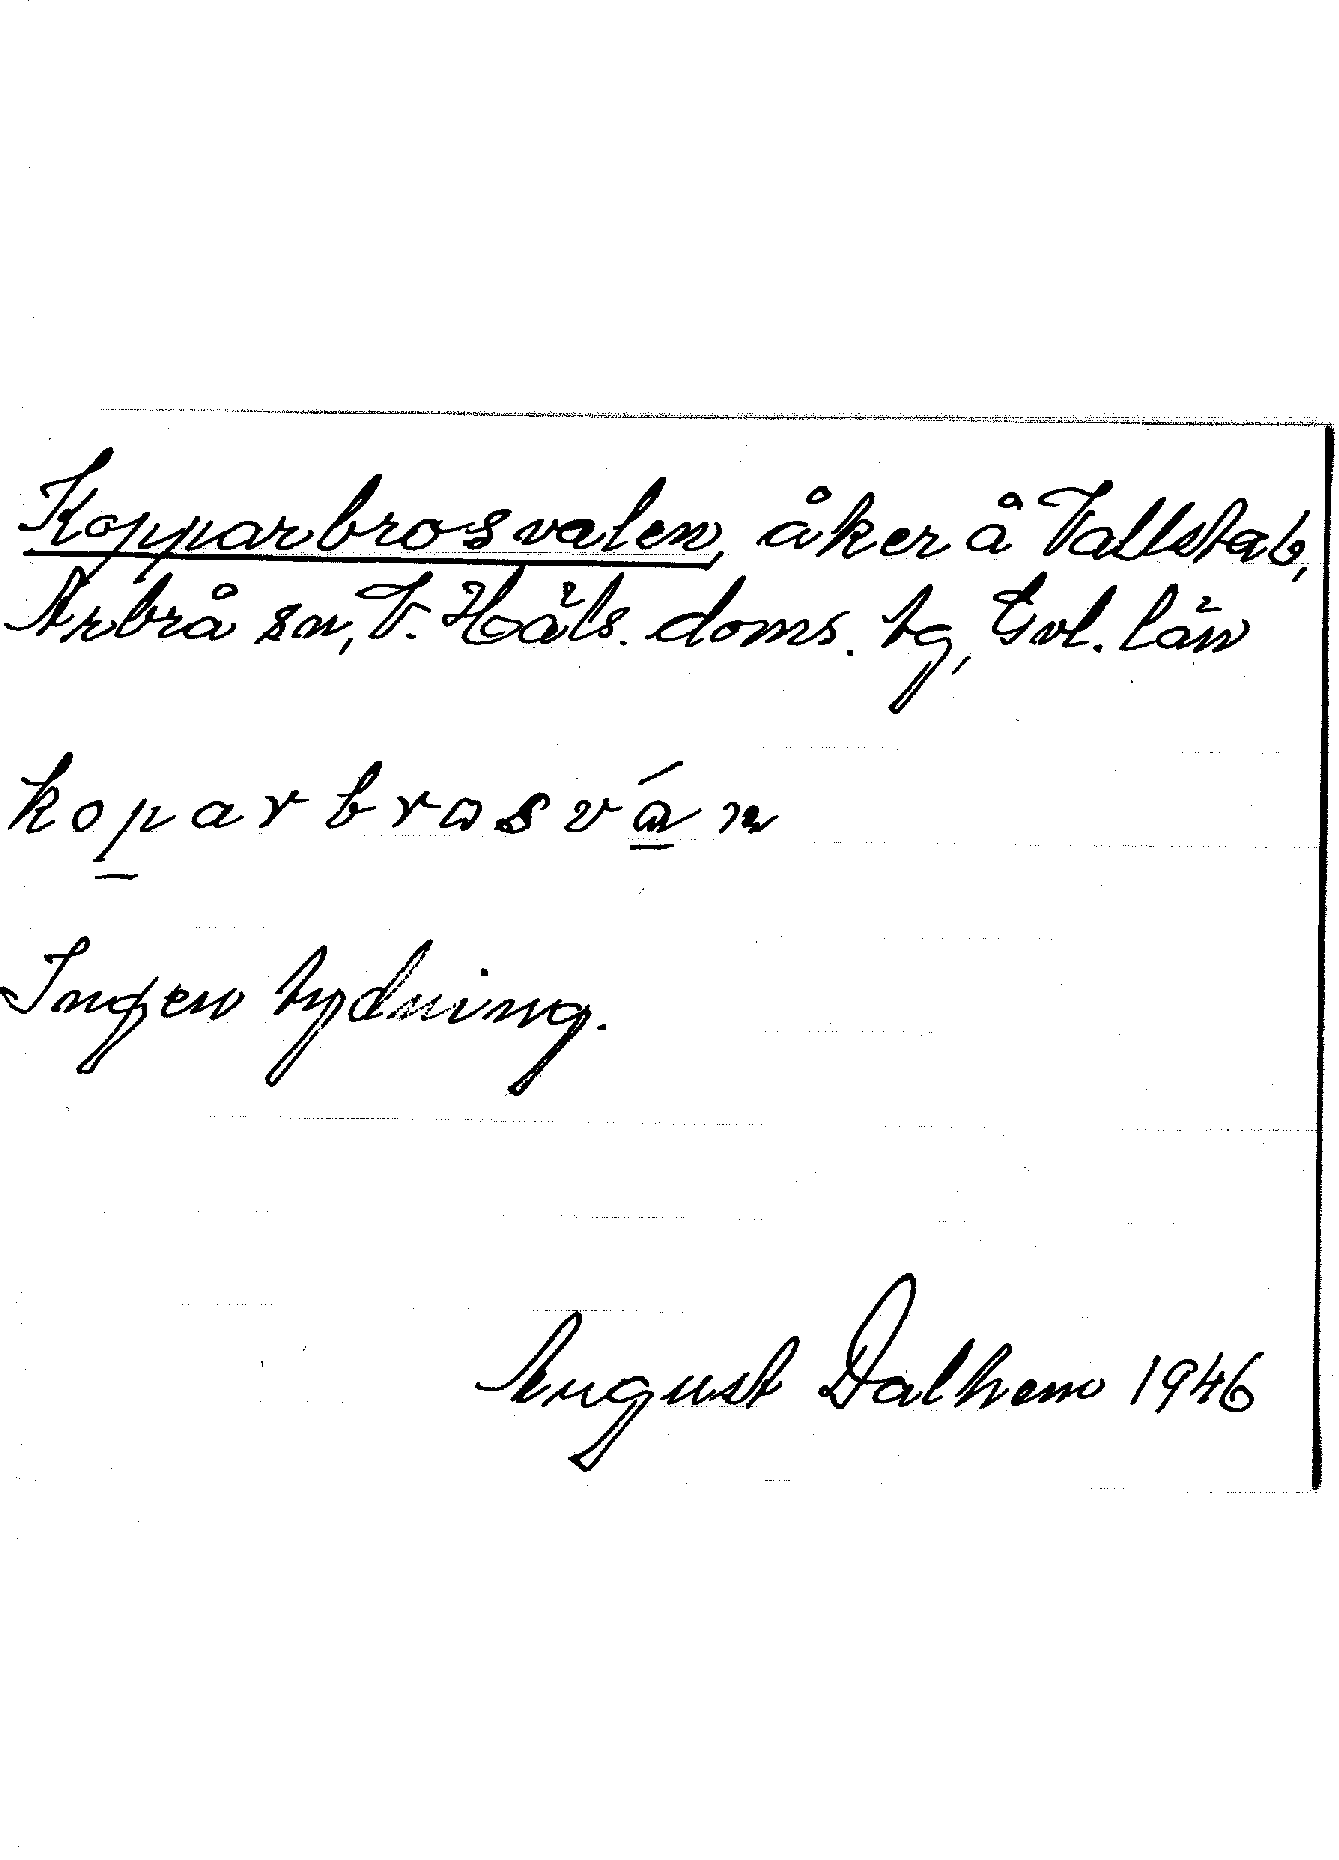 Kopparbrosvalen, åker å Vallsta b,
Arbrå sn, V. Häls. doms. tg, Gvl. län
koparbrosván
Ingen tydning.
August Dalhem 1946